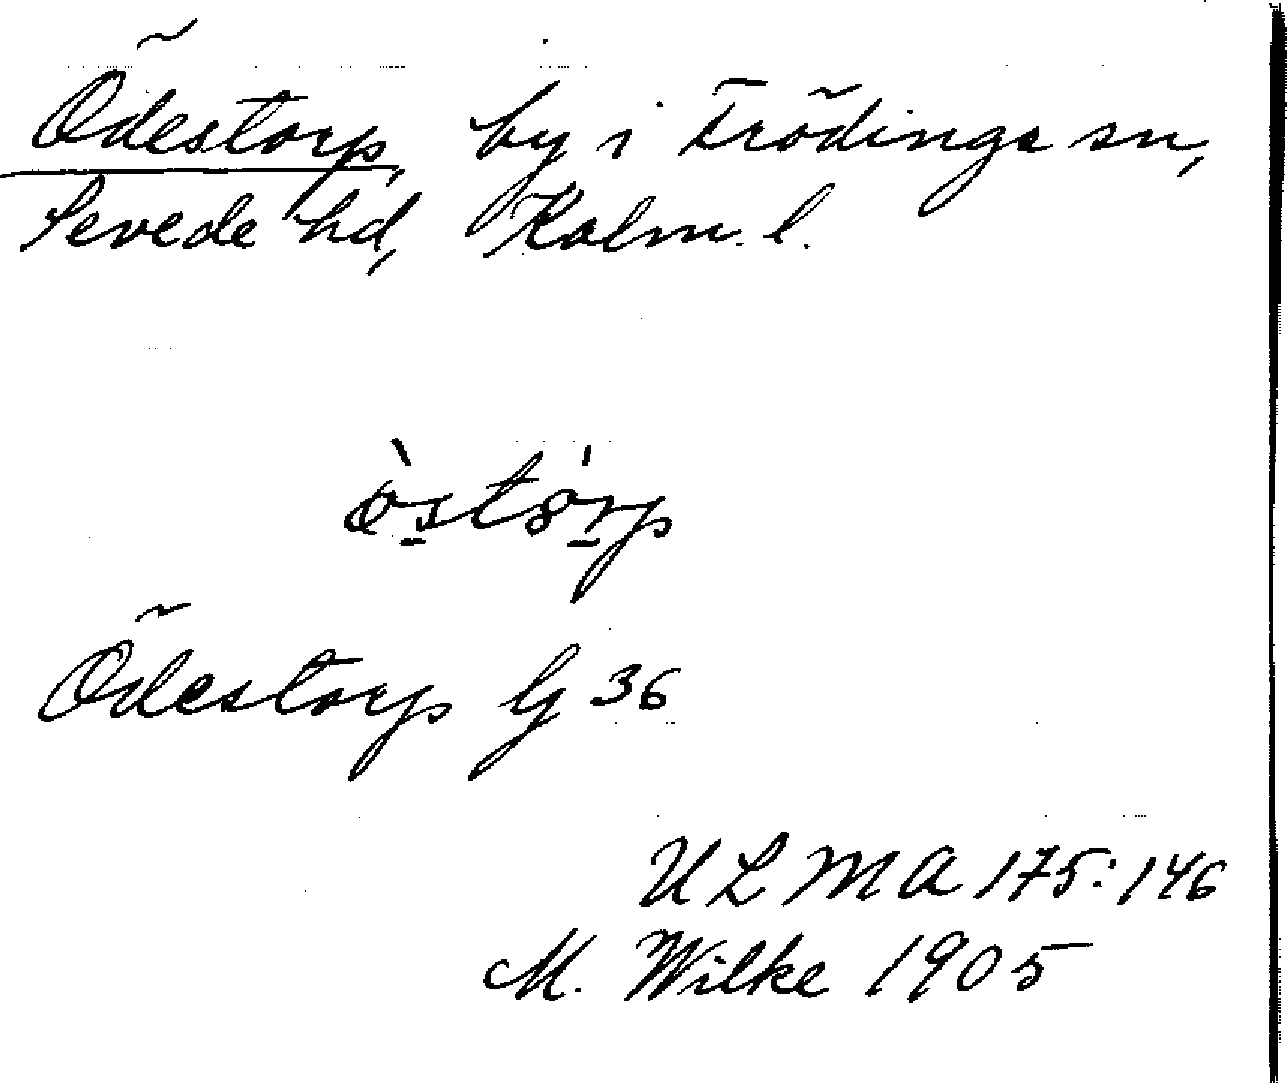 Ödestorp, by i Frödinge sn,
Sevede hd, Kalm. l.
Ödestorp G 36
ULMA 175:146
M. Wilke 1905